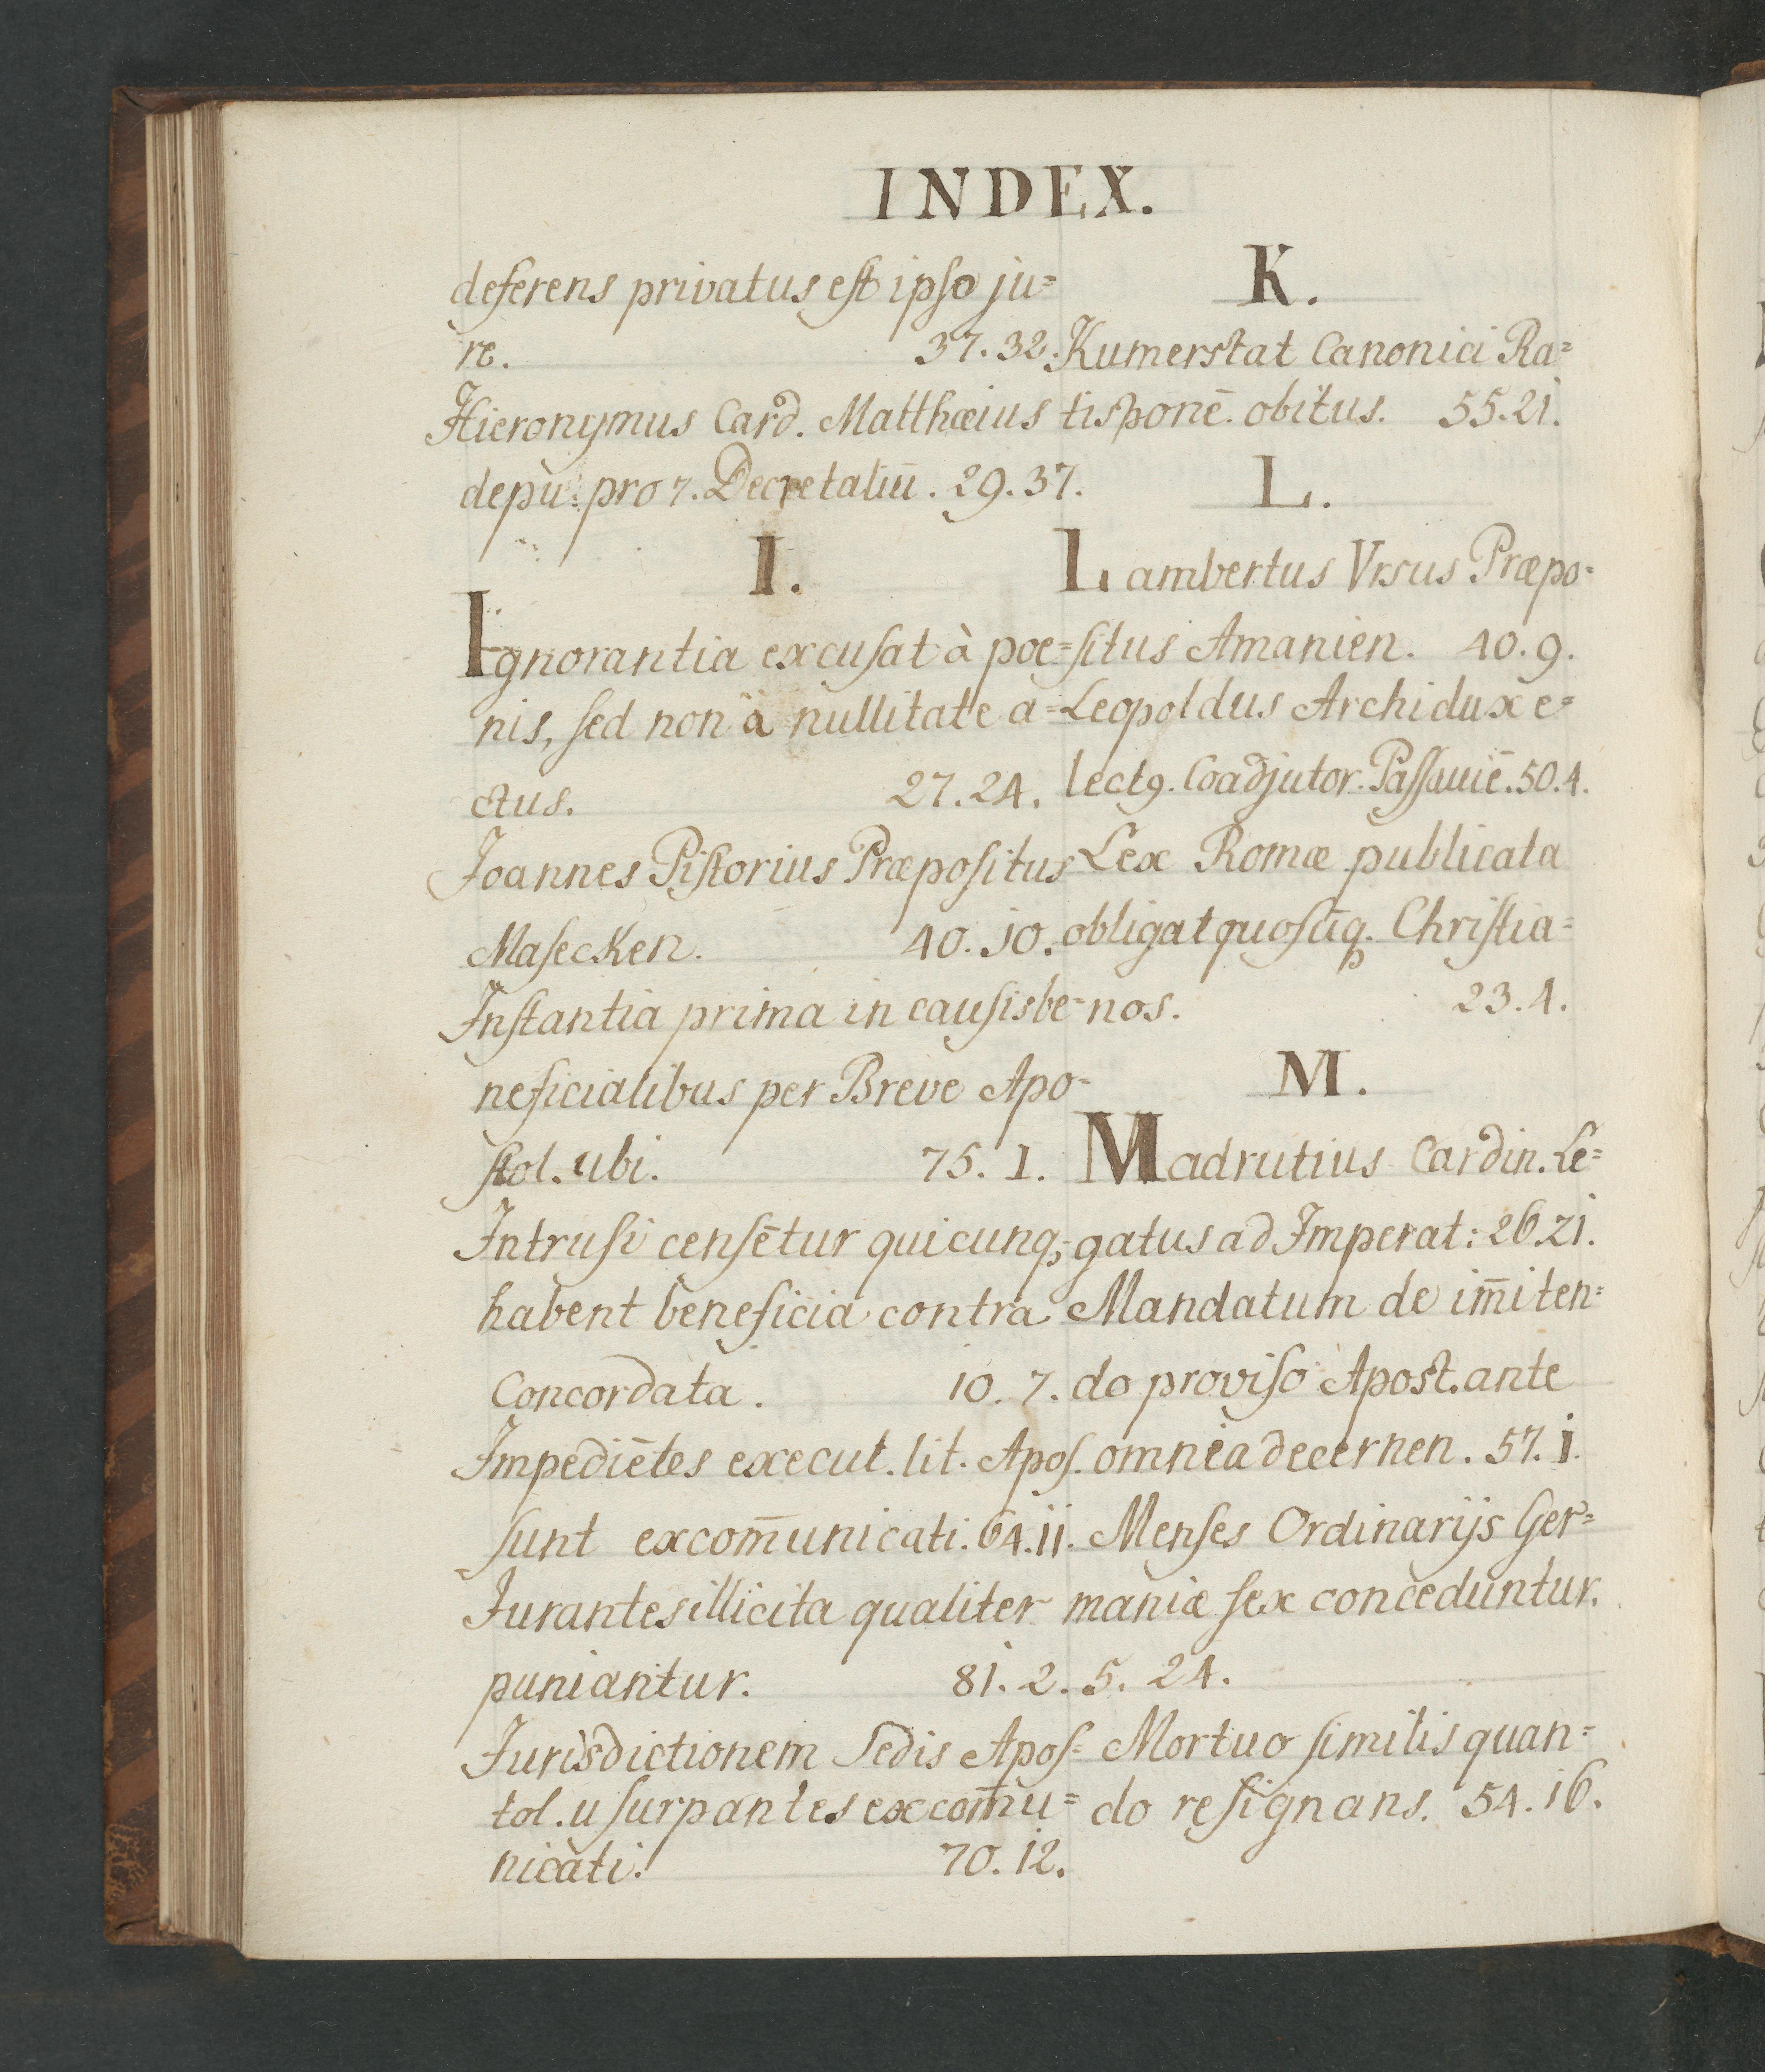 INDEX.
deferens privatus eſt ipſo ju=
re. 37. 32.
Hieronymus Card. Matthæius
depu: pro 7. Decretaliū. 29. 37.
I.
Ignorantia excuſat à poe=
nis, ſed non à nullitate a=
ctus. 27. 24.
Joannes Piſtorius Præpoſitus
Maſecken. 40. 10.
Inſtantia prima in cauſis be=
neficialibus per Breve Apo=
ſtol. ubi. 75. 1.
Intruſi cenſētur quicunq;
habent beneficia contra
Concordata. 10. 7.
Impediētes execut. lit. Apoſ.
ſunt excom̄unicati. 64. 11.
Jurantes illicita qualiter
puniantur. 81. 2.
Jurisdictionem Sedis Apoſ=
tol. uſurpantes excom̄u=
nicati. 70. 12.
K.
Kumerstat Canonici Ra=
tisponē. obitus. 55. 21.
L.
Lambertus Vrsus Præpo=
ſitus Amanien. 40. 9.
Leopoldus Archidux e=
lectꝯ. Coadjutor. Paſſauiē. 50. 4.
Lex Romæ publicata
obligat quoſcūq. Chriſtia=
nos. 23. 4.
M.
Madrutius Cardin. Le=
gatus ad Imperat: 26. 21.
Mandatum de im̄iten=
do proviſo Apost. ante
omnia decernen. 57. 1.
Menſes Ordinarijs Ger=
maniæ ſex conceduntur.
5. 24.
Mortuo ſimilis quan=
do reſignans. 54. 16.